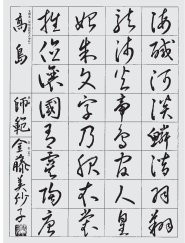 海鹹河淡鱗潛羽翔
龍師火帝鳥官人皇
始制文字乃服衣裳
推位讓國有虞陶唐
師範 金藤美紗子